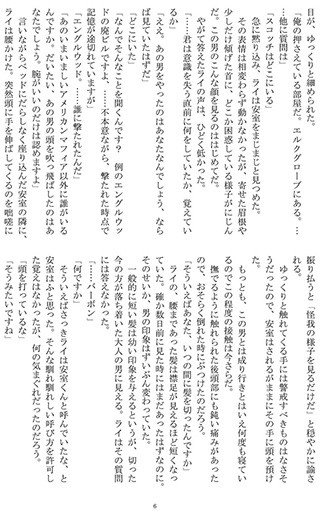 目が、ゆっくりと細められた。
「俺の押さえている部屋だ。エルタグローブにある。
…他に質問は」
「スコッチはどこにいる」
急に黙り込み、ライは安室をまじまじと見つめた。
その表情は相変わらず動かなかったが、寄せた眉根や
少しだけ傾げた首に、どこか困惑している様子がにじん
だ。この男のこんな顔を見るのははじめてだ。
やがて答えたライの声は、ひどく低かった。
「……君は意識を失う直前に何をしていたか、覚えてい
るか」
「ええ。あの男をやったのはあなたなんでしょう、なら
ば見ていたはずだ」
「どこにいた」
「なんでそんなことを聞くんです？　例のエングルウッ
ドの廃ビルですよ、……不本意ながら、撃たれた時点で
記憶が途切れていますが」
「エングルウッド。……誰に撃たれたんだ」
「あのいまいましいアメリカンマフィア以外に誰がいる
んですか。だいたい、あの男の頭を吹っ飛ばしたのはあ
なたでしょう。腕がいいのだけは認めますよ」
言いながらベッドにだらしなく座り込んだ安室の隣に、
ライは腰かけた。突然頭に手を伸ばしてくるのを咄嗟に
振り払うと、「怪我の様子を見るだけだ」と穏やかに諭さ
れる。
ゆっくりと触れてくる手には警戒すべきものはなさそ
うだったので、安室はされるがままにその手に頭を預け
た。
もっとも、この男とは成り行きとはいえ何度も寝てい
るのでこの程度の接触は今さらだ。
撫でるように触れられた後頭部にも鈍い痛みがあった
ので、おそらく倒れた時にぶつけたのだろう。
「そういえばあなた、いつの間に髪を切ったんですか」
ライの、腰まであった髪は襟足が見えるほど短くなっ
ていた。確か数日前に見た時にはまだあったはずなのに。
そのせいか、男の印象はずいぶん変わっていた。
一般的に短い髪は幼い印象を与えるというが、切った
今の方が落ち着いた大人の男に見える。ライはその質問
には答えなかった。
「……バーボン」
「何ですか」
そういえばさっきライは安室くんと呼んでいたな、と
安室はふと思った。そんな馴れ馴れしい呼び方を許可し
た覚えはなかったが、何の気まぐれだったのだろう。
「頭を打っているな」
「そうみたいですね」
6